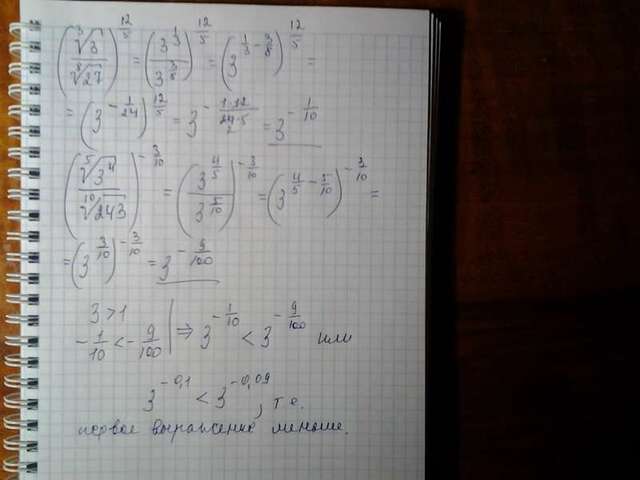 (∛3 / ⁸√27)^(12/5) = (3^(1/3) / 3^(3/8))^(12/5) = (3^(1/3 − 3/8))^(12/5) =
= (3^(−1/24))^(12/5) = 3^(−(1·12)/(24·5)) = 3^(−1/10)
(⁵√3⁴ / ¹⁰√243)^(−3/10) = (3^(4/5) / 3^(5/10))^(−3/10) = (3^(4/5 − 5/10))^(−3/10) =
= (3^(3/10))^(−3/10) = 3^(−9/100)
3 > 1
−1/10 < −9/100 | ⇒ 3^(−1/10) < 3^(−9/100) или
3^(−0,1) < 3^(−0,09), т.е.
первое выражение меньше.